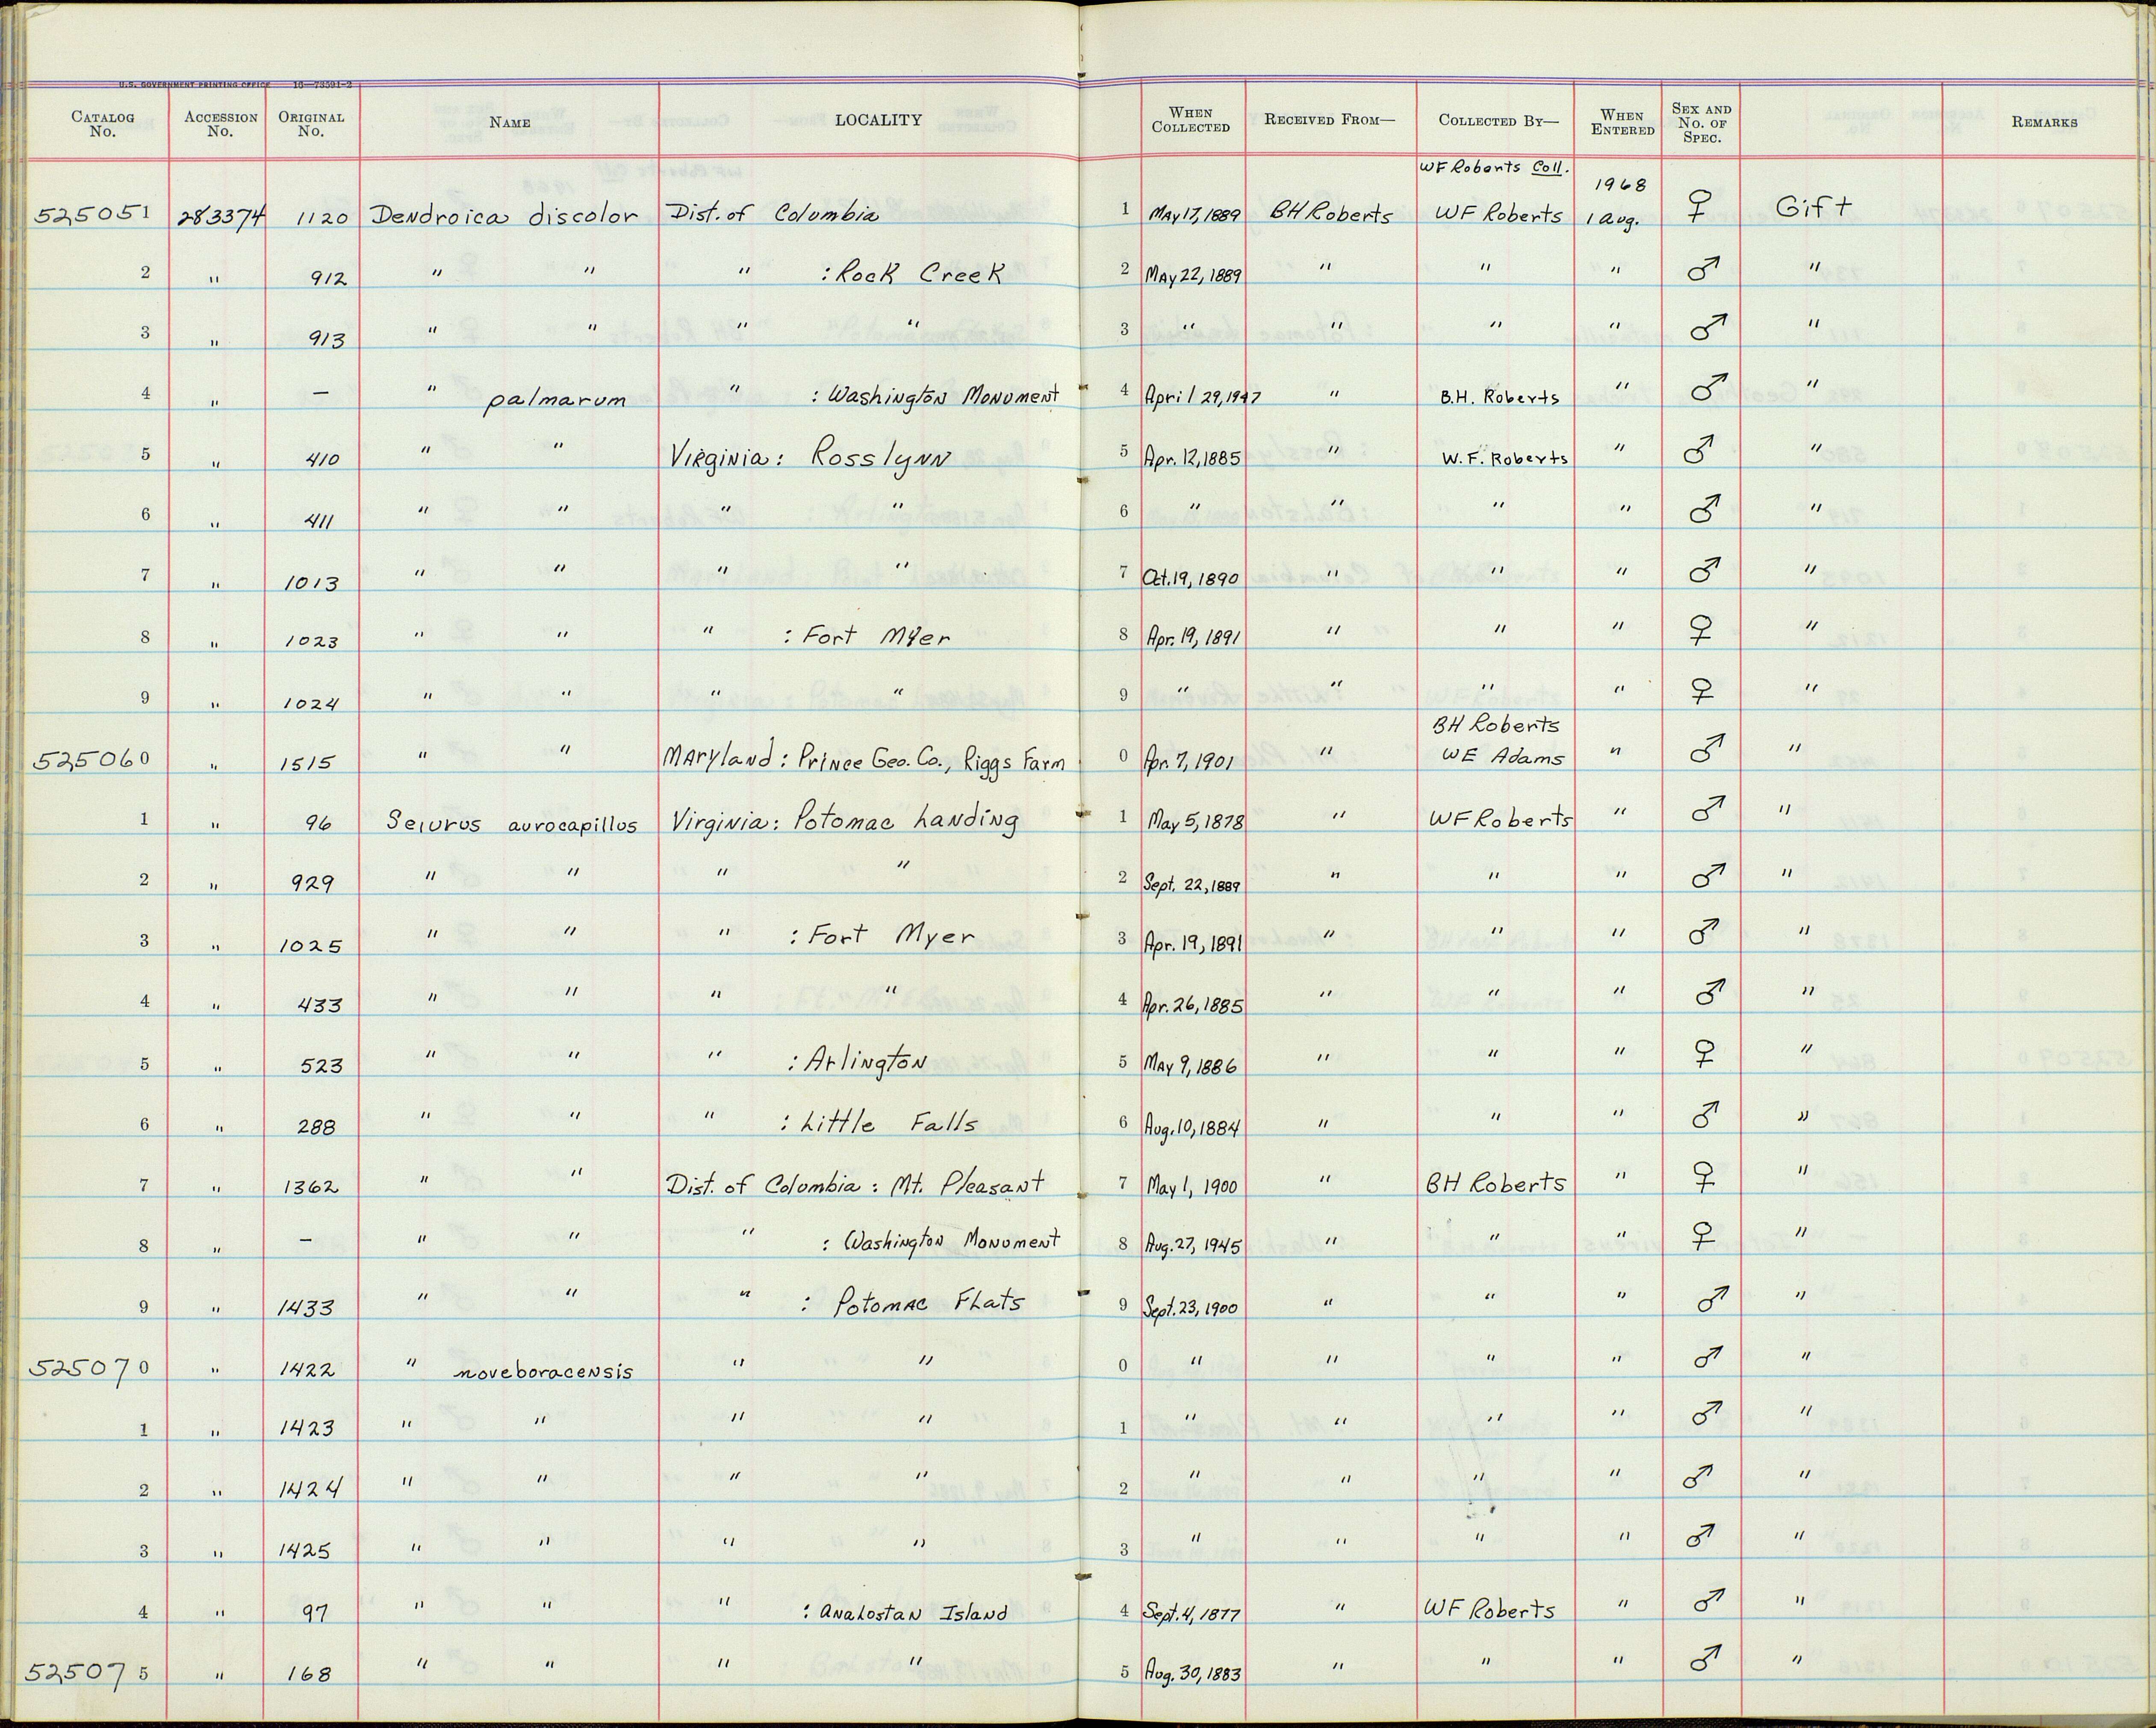 U.S. GOVERNMENT PRINTING OFFICE 16—73591-2
CATALOG No. ACCESSION No. ORIGINAL No. NAME LOCALITY WHEN COLLECTED RECEIVED FROM— COLLECTED BY— WHEN ENTERED SEX AND No. OF SPEC. REMARKS
WF Roberts Coll. 1968
525051 283374 1120 Dendroica discolor Dist. of Columbia 1 May 17, 1889 BH Roberts WF Roberts 1 Aug. ♀ Gift
2 " 912 " " " : Rock Creek 2 May 22, 1889 " " " ♂ "
3 " 913 " " " " 3 " " " " ♂ "
4 " — " palmarum " : Washington Monument 4 April 29, 1947 " B.H. Roberts " ♂ "
5 " 410 " " Virginia: Rosslynn 5 Apr. 12, 1885 " W.F. Roberts " ♂ "
6 " 411 " " " " 6 " " " " ♂ "
7 " 1013 " " " " 7 Oct. 19, 1890 " " " ♂ "
8 " 1023 " " " : Fort Myer 8 Apr. 19, 1891 " " " ♀ "
9 " 1024 " " " " 9 " " " " ♀ "
BH Roberts
525060 " 1515 " " Maryland: Prince Geo. Co., Riggs Farm 0 Apr. 7, 1901 " WE Adams " ♂ "
1 " 96 Seiurus aurocapillus Virginia: Potomac Landing 1 May 5, 1878 " WF Roberts " ♂ "
2 " 929 " " " " 2 Sept. 22, 1889 " " " ♂ "
3 " 1025 " " " : Fort Myer 3 Apr. 19, 1891 " " " ♂ "
4 " 433 " " " " 4 Apr. 26, 1885 " " " ♂ "
5 " 523 " " " : Arlington 5 May 9, 1886 " " " ♀ "
6 " 288 " " " : Little Falls 6 Aug. 10, 1884 " " " ♂ "
7 " 1362 " " Dist. of Columbia: Mt. Pleasant 7 May 1, 1900 " BH Roberts " ♀ "
8 " — " " " : Washington Monument 8 Aug. 27, 1945 " " " ♀ "
9 " 1433 " " " : Potomac Flats 9 Sept. 23, 1900 " " " ♂ "
525070 " 1422 " noveboracensis " " 0 " " " " ♂ "
1 " 1423 " " " " 1 " " " " ♂ "
2 " 1424 " " " " 2 " " " " ♂ "
3 " 1425 " " " " 3 " " " " ♂ "
4 " 97 " " " : Analostan Island 4 Sept. 4, 1877 " WF Roberts " ♂ "
525075 " 168 " " " " 5 Aug. 30, 1883 " " " ♂ "